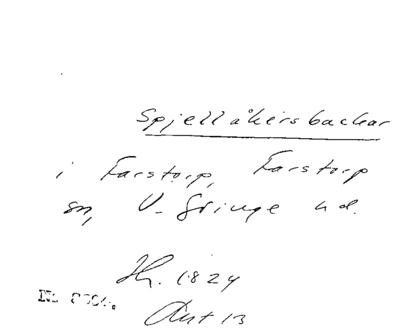 Spjellåkersbackar
i Farstorp, Farstorp
sn, V. Göinge hd.
Hr. 1824
Ant 13